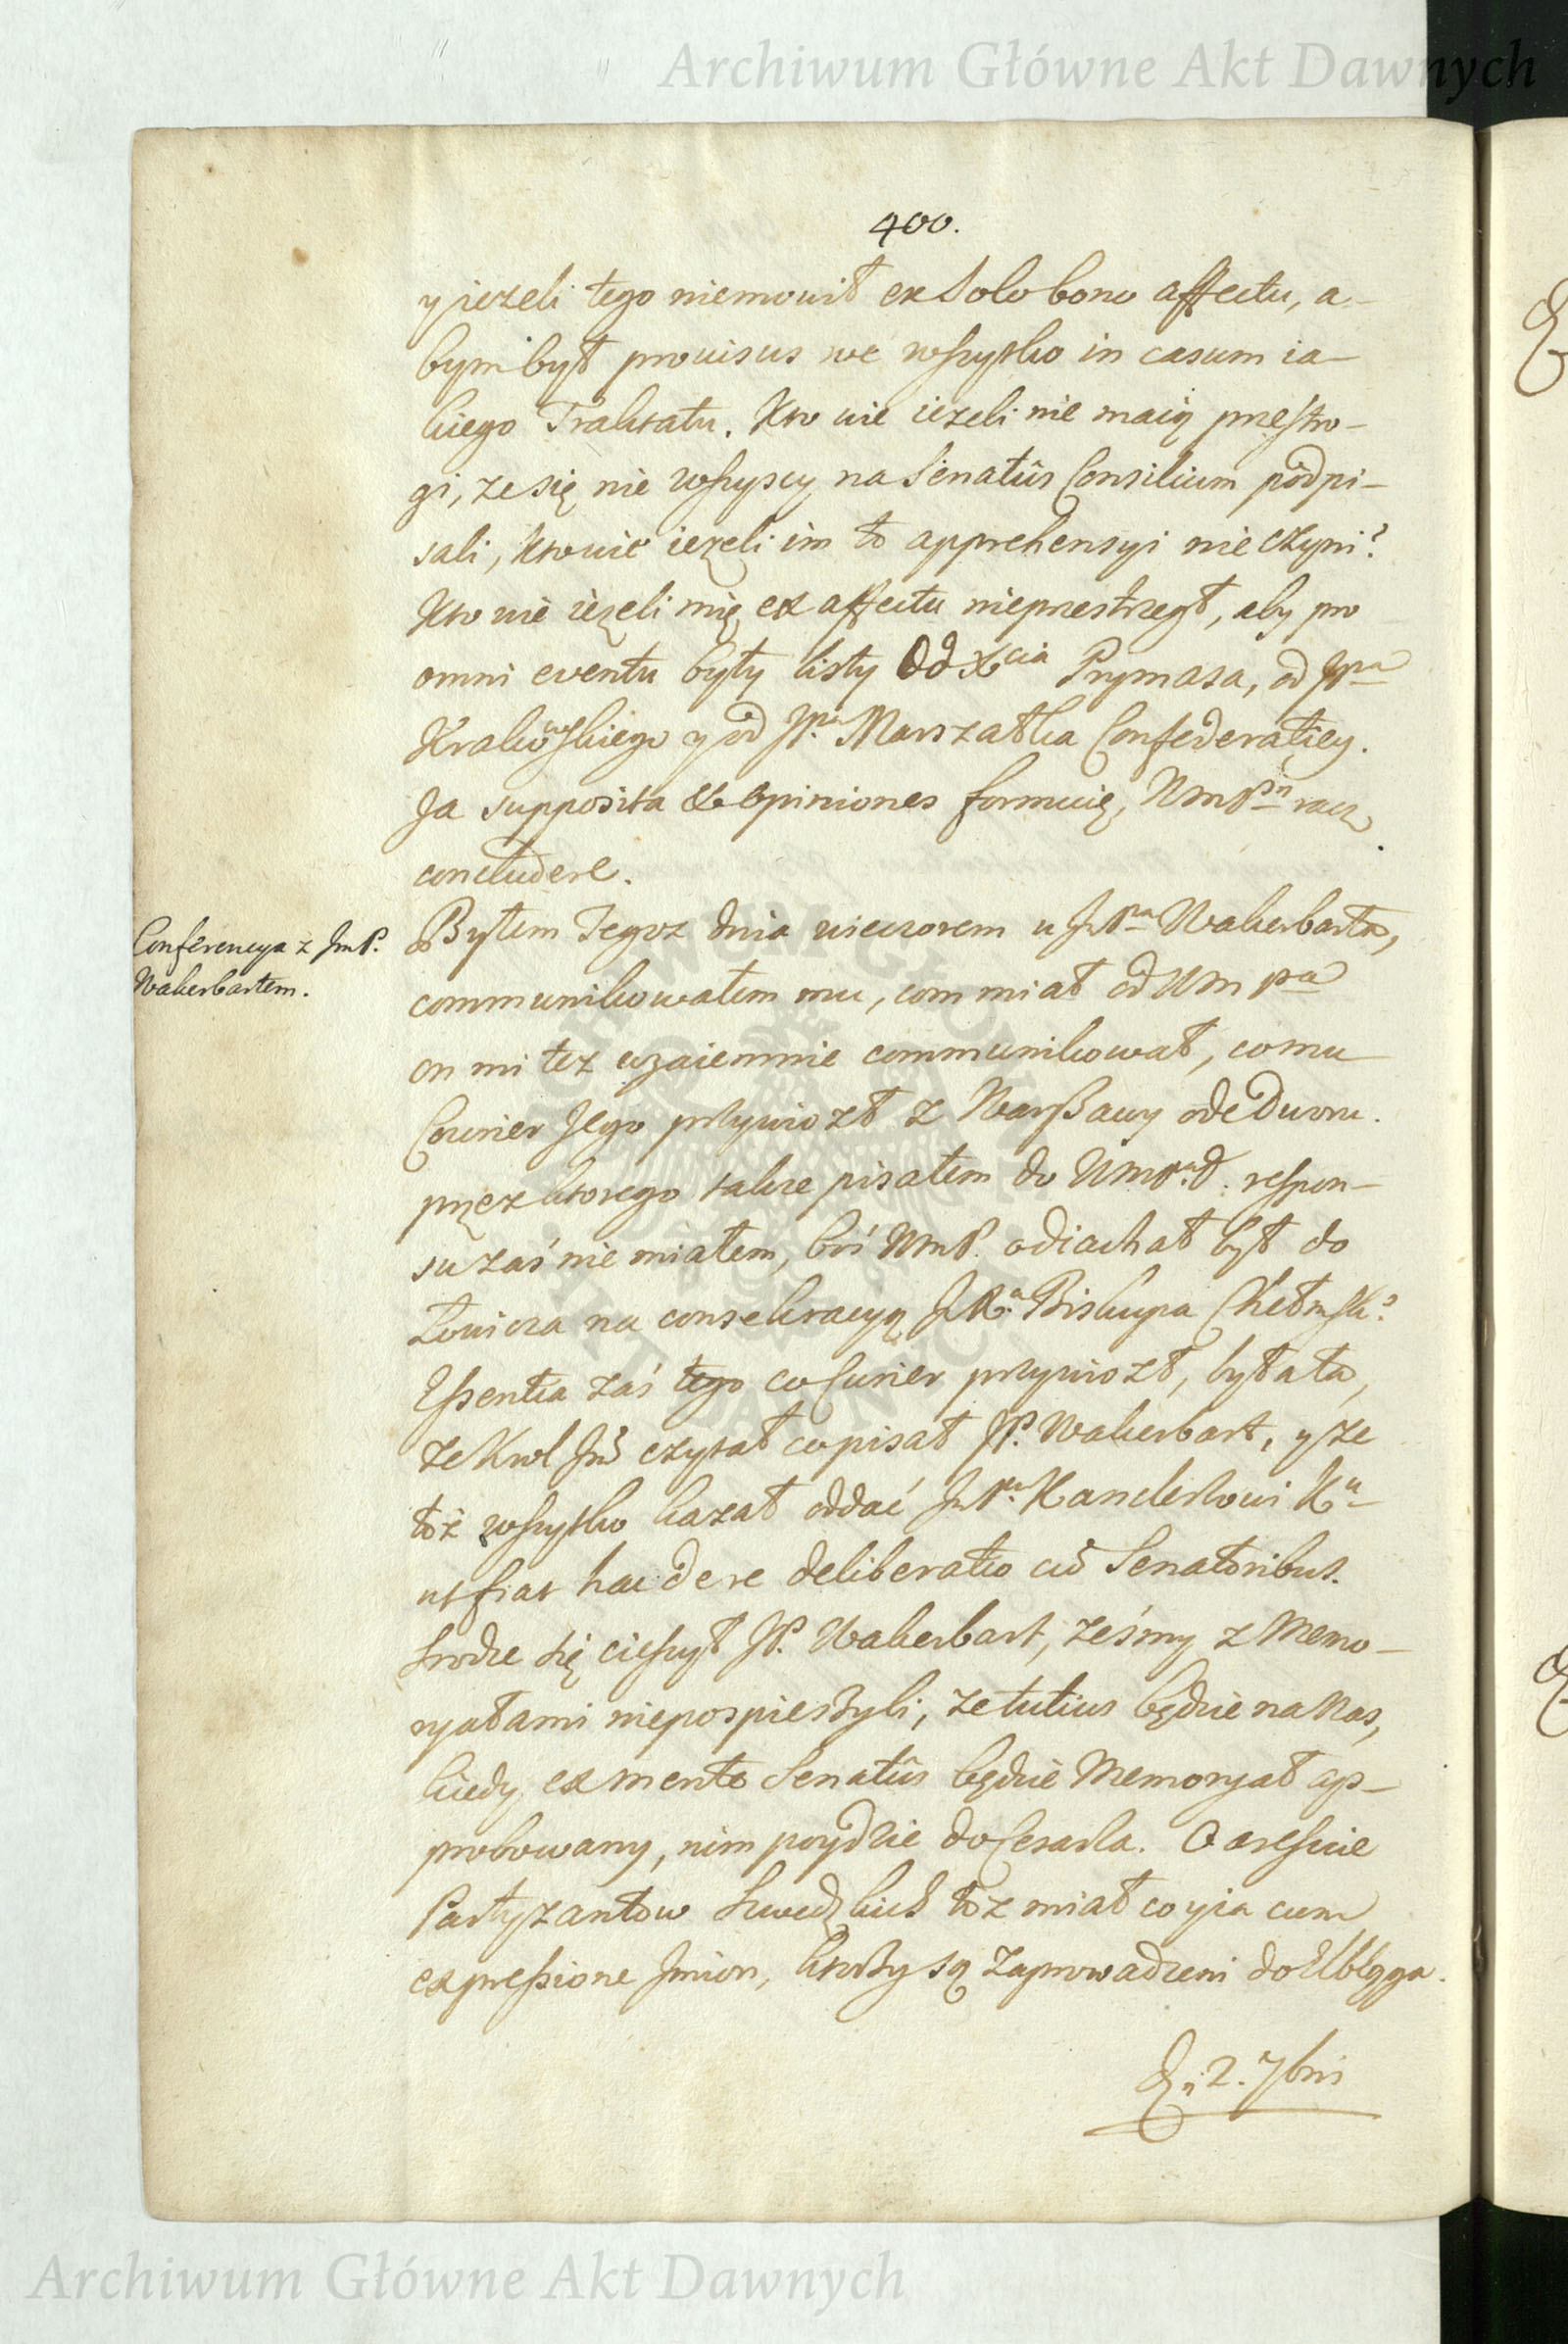 Archiwum Główne Akt Dawnych
400.
y jezeli tego niemowił ex Solo bono affectu, a-
bym był provisus we wszytko in casum ia-
kiego Traktatu. Kto wie iezeli nie maią przestro-
gi, ze się nie wszyscy na Senatûs Consilium podpi-
sali, kto wie iezeli im to apprehensyi nie czyni?
Kto wie iezeli mię ex affectu nieprzestrzegł, aby pro
omni eventu były listy Od Xcia Prymasa, od JPa
Krakowskiego y od JPa Marszałka Confederatiey.
Ja supposita & opiniones formuię, WmPn racz
concludere.
Conferencya z JmP.
Wakerbartem.
Byłem Tegoz dnia wieczorem u JmPa Wakerbarta,
communikowałem mu, com miał od Wm Pa
on mi tez wzaiemnie communikował, co mu
Courier Jego przywiozł z Warszawy ode Dworu.
przez ktorego takze pisałem do WmPa d. respon-
su zaś nie miałem, boś WmP. odiachał był do
Łowicza na consekracyą JXa Biskupa Chełmsk?
Essentia zaś tego co Curier przywiozł, była ta,
ze Krol Jmć czytał co pisał JP. Wakerbart, y ze
toż wszytko kazał oddać JmPu Kanclerzowi Ku
ut fiat hac de re deliberatio cũ Senatoribus.
Srodze się cieszył JP. Wakerbart, żeśmy z Memo-
ryałami niepospieszyli, ze tutius będzie na nas,
kiedy ex mente Senatûs będzie Memoryał ap-
probowany, nim poydzie do Cesarza. O areszcie
Partyzantow Szwedzkich toz miał co y ia cum
expressione Jmion, ktorzy są zaprowadzeni do Elbląga.
D. 2. 7bris
Archiwum Główne Akt Dawnych